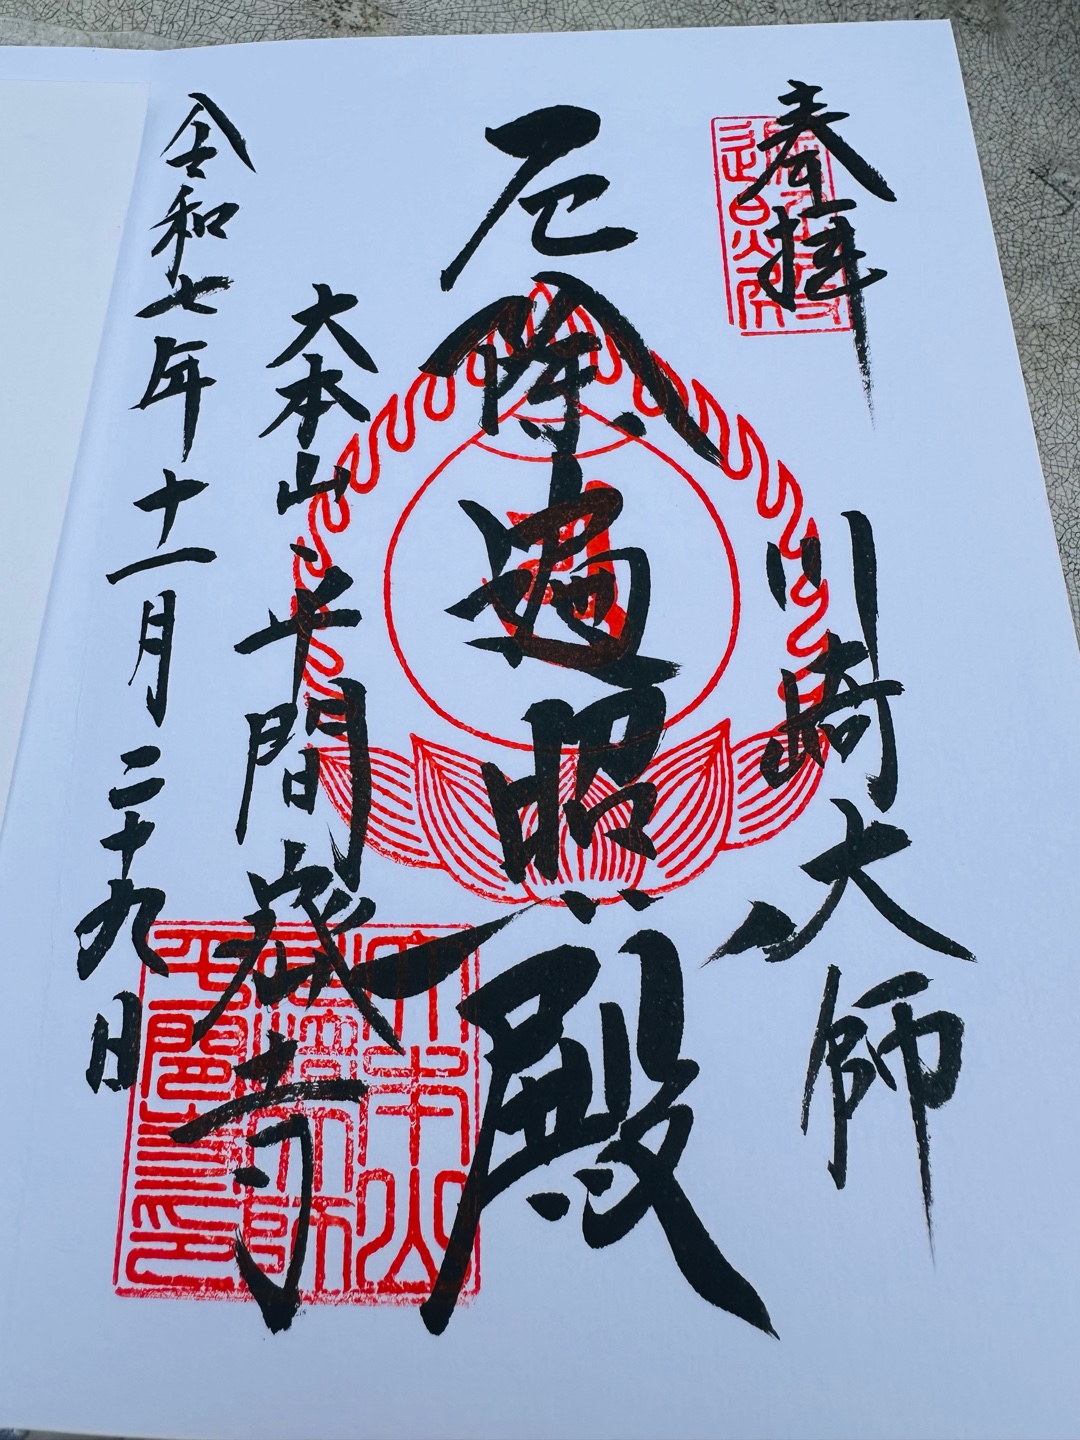 奉拝
川崎大師
厄除遍照殿
大本山平間寺
令和七年十一月二十九日
大本山
平間寺印